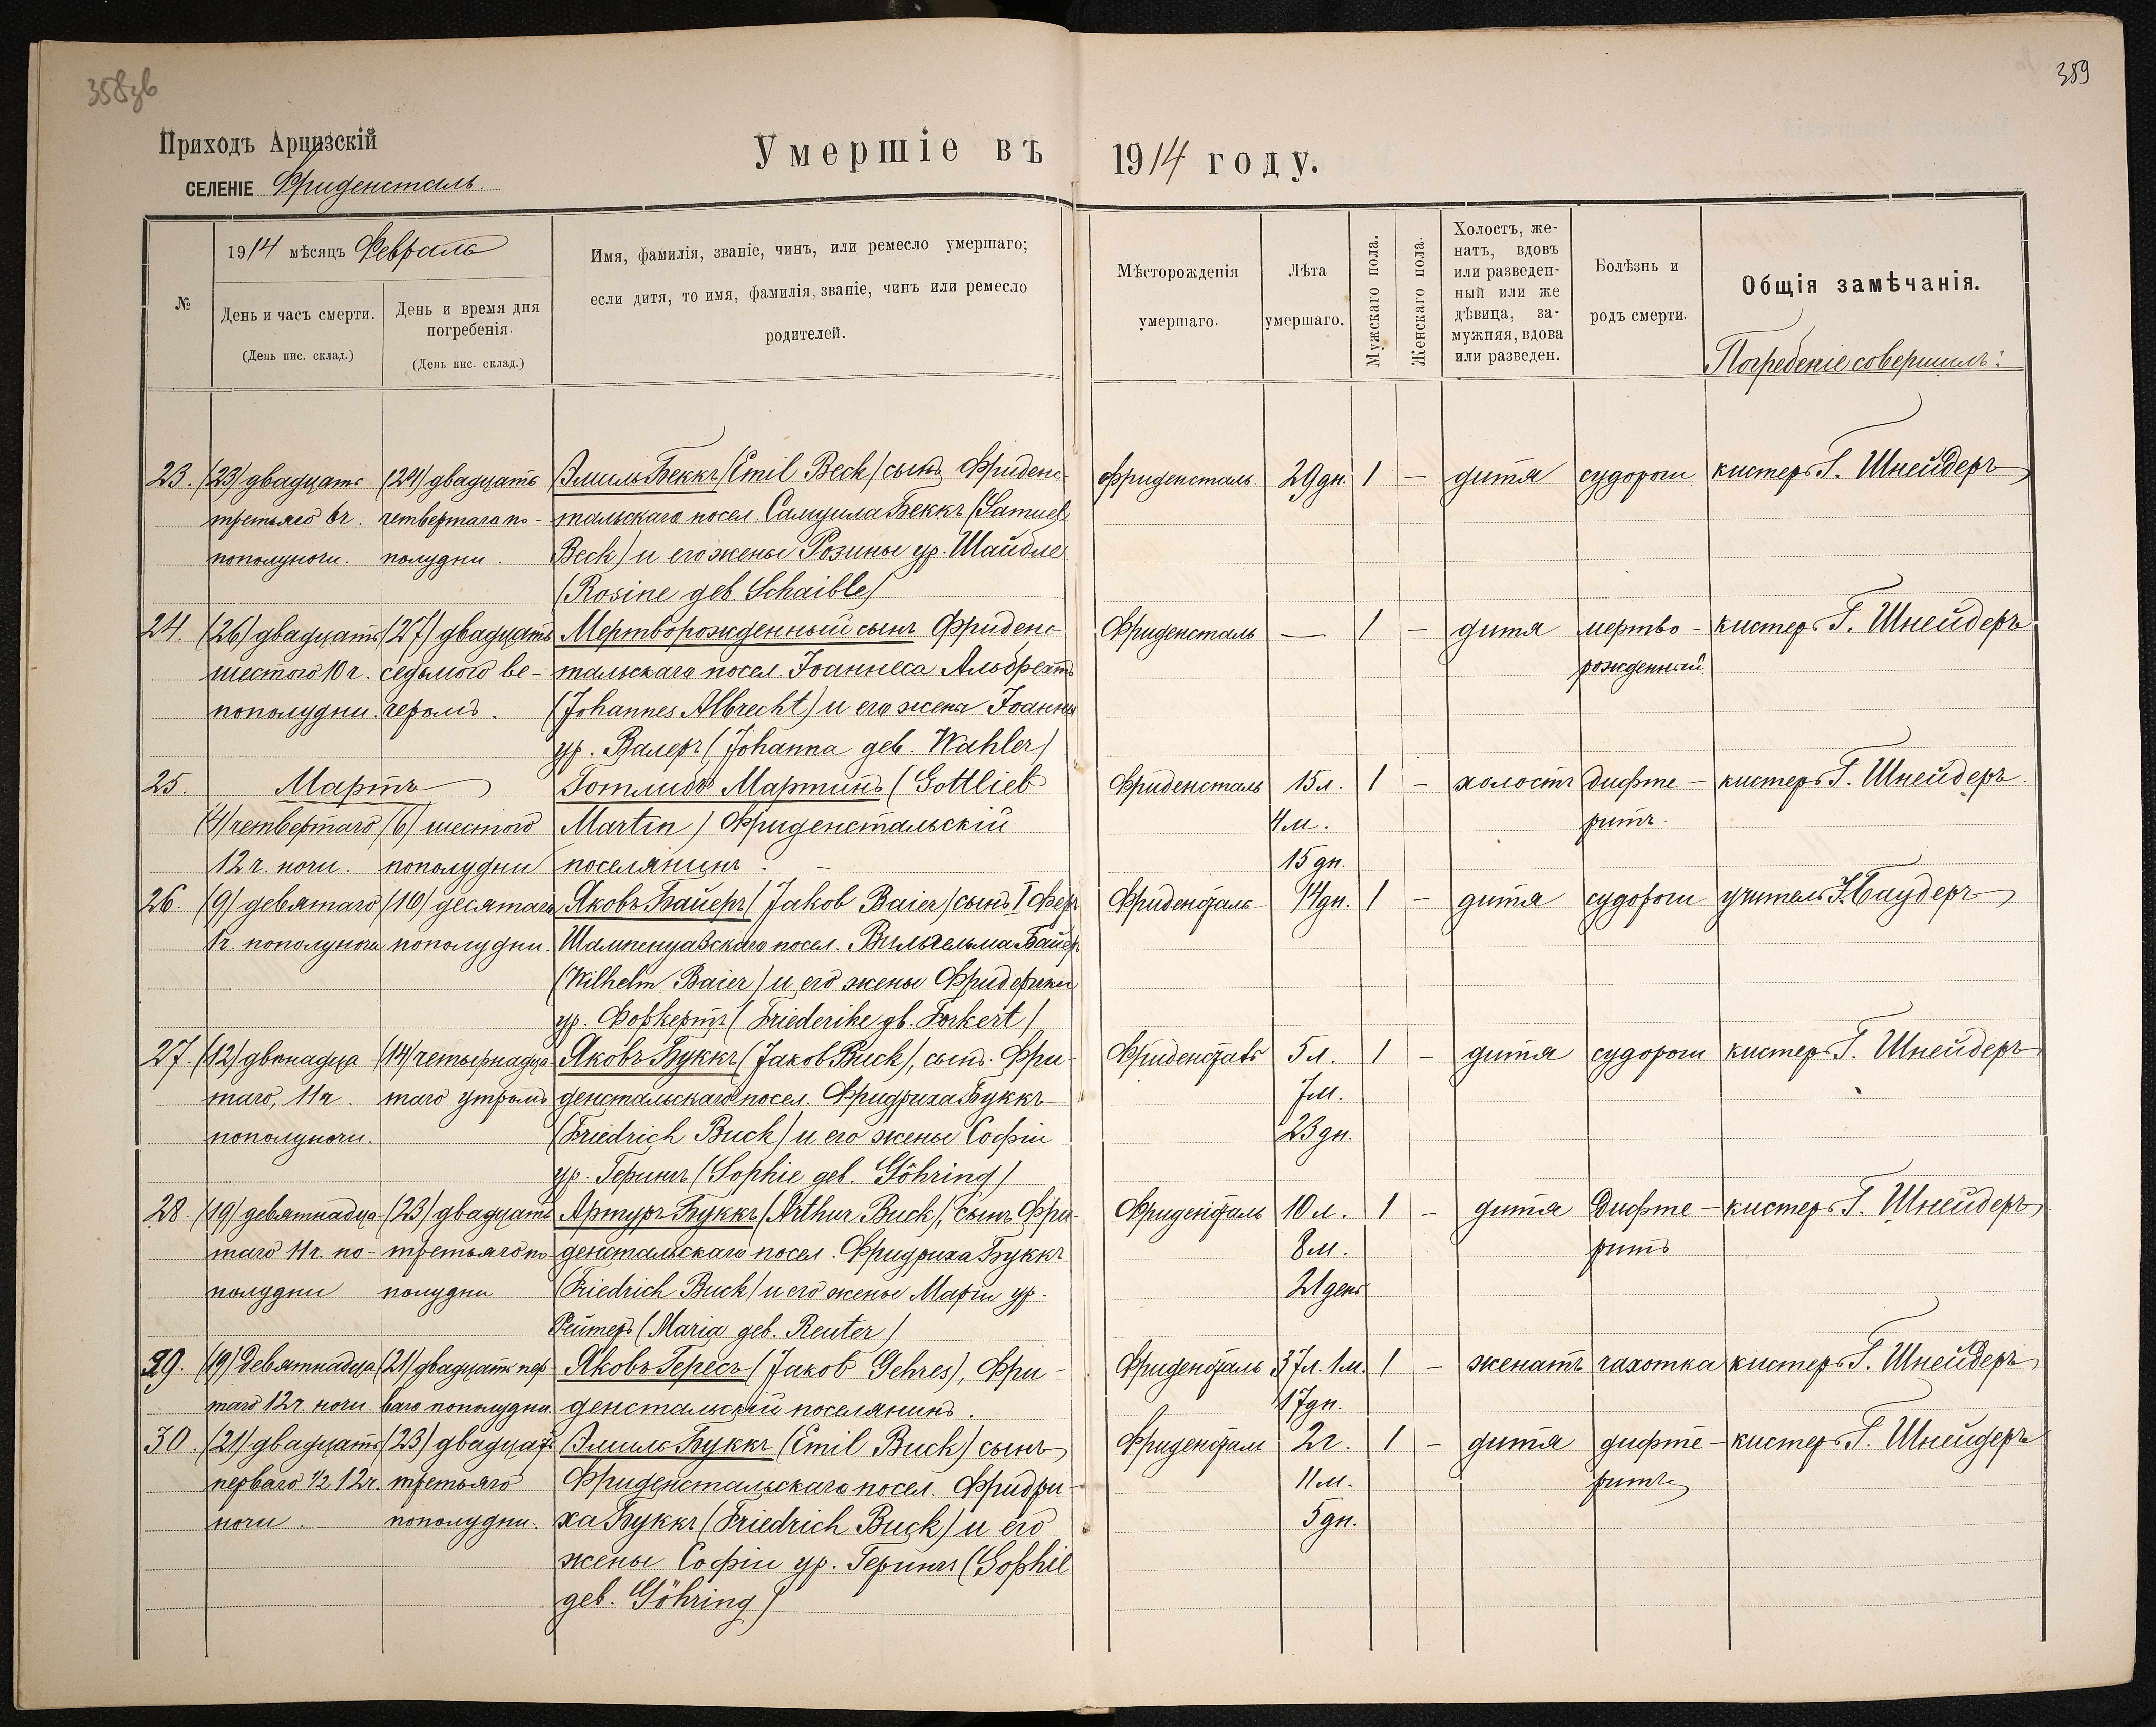 358зв
359
Приходъ Арцизскій
Умершіе въ 1914 году.
СЕЛЕНІЕ Фриденсталь.
№
1914 мѣсяцъ Февраль
День и часъ смерти.
(День пис. склад.)
День и время дня
погребенія.
(День пис. склад.)
Имя, фамилія, званіе, чинъ, или ремесло умершаго;
если дитя, то имя, фамилія, званіе, чинъ или ремесло
родителей.
Мѣсторожденія
умершаго.
Лѣта
умершаго.
Мужскаго пола.
Женскаго пола.
Холостъ, же-
натъ, вдовъ
или разведен-
ный или же
дѣвица, за-
мужняя, вдова
или разведен.
Болѣзнь и
родъ смерти.
Общія замѣчанія.
Погребеніе совершилъ:
23. (23) двадцать (24) двадцать Эмиль Беккъ (Emil Beck) сынъ Фриденс- Фриденсталь 29 дн. 1 – дитя судороги кистеръ Г. Шнейдеръ
третьяго 6 ч. четвертаго по- тальскаго посел. Самуила Беккъ (Samuel
пополуночи. полудни. Beck) и его жены Розины ур. Шайбле
(Rosine geb. Schaible)
24. (26) двадцать (27) двадцать Мертворожденный сынъ Фриденс- Фриденсталь — 1 – дитя мертво- кистеръ Г. Шнейдеръ
шестого 10 ч. седьмого ве- тальскаго посел. Іоаннеса Альбрехтъ рожденный
пополудни. черомъ. (Johannes Albrecht) и его жены Іоанны
ур. Валеръ (Johanna geb. Wahler)
25. Мартъ Готлибъ Мартинъ (Gottlieb Фриденсталь 15 л. 1 – холостъ дифте- кистеръ Г. Шнейдеръ
(4) четвертаго (6) шестого Martin) Фриденстальскій 4 м. ритъ.
12 ч. ночи. пополудни поселянинъ. – 15 дн.
26. (9) девятаго (10) десятаго Яковъ Байеръ (Jakob Baier) сынъ I Фер- Фриденсталь 14 дн. 1 – дитя судороги учитель Я. Баудеръ
1 ч. пополуночи пополудни. Шампенуазскаго посел. Вильгельма Байеръ
(Wilhelm Baier) и его жены Фридерики
ур. Форкертъ (Friederike gb. Forkert)
27. (12) двенадца- (14) четырнадца- Яковъ Буккъ (Jakob Buck), сынъ Фри- Фриденсталь 5 л. 1 – дитя судороги кистеръ Г. Шнейдеръ
таго, 11 ч. таго утромъ денстальскаго посел. Фридриха Буккъ 7 м.
пополуночи. (Friedrich Buck) и его жены Софіи 23 дн.
ур. Герингъ (Sophie geb. Göhring)
28. (19) девятнадца- (23) двадцать Артуръ Буккъ (Arthur Buck), сынъ Фри- Фриденсталь 10 л. 1 – дитя Дифте- кистеръ Г. Шнейдеръ
таго 11 ч. по- третьяго по денстальскаго посел. Фридриха Буккъ 8 м. ритъ
полудни полудни (Friedrich Buck) и его жены Маріи ур. 21 день
Рейтеръ (Maria geb. Reuter)
29. (19) Девятнадца- (21) двадцать пер- Яковъ Гересъ (Jakob Gehres), Фри- Фриденсталь 37 л. 1 м. 1 – женатъ чахотка кистеръ Г. Шнейдеръ
таго 12 ч. ночи ваго пополудни. денстальскій поселянинъ. 17 дн.
30. (21) двадцать (23) двадцать Эмиль Буккъ (Emil Buck) сынъ Фриденсталь 2 г. 1 – дитя дифте- кистеръ Г. Шнейдеръ
перваго ½ 12 ч. третьяго Фриденстальскаго посел. Фридри- 11 м. ритъ
ночи. пополудни. ха Буккъ (Friedrich Buck) и его 5 дн.
жены Софіи ур. Герингъ (Sophie
geb. Göhring)